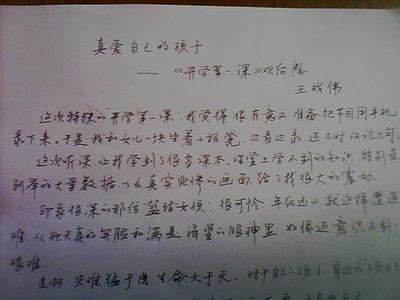 真爱自己的孩子
——《开学第一课》观后感
王战伟
这次特殊的"开学第一课"我觉得很有意义 准备把节目用手机
录下来。于是我和女儿一块坐着小板凳,边看边录,还不时议论几句。
这次听课,让我学到了很多课本、课堂上学不到的知识 特别是
列举的大量数据 以及真实悲惨的画面,给了我很大的震动。
印象很深的那位"篮球女孩"很可怜 年纪还小就这样遭遇
难,从她天真的笑脸和满是渴望的眼神里 好像还意识不到
艰难。
是啊,灾难猛于虎,生命大于天。对于自己的孩子